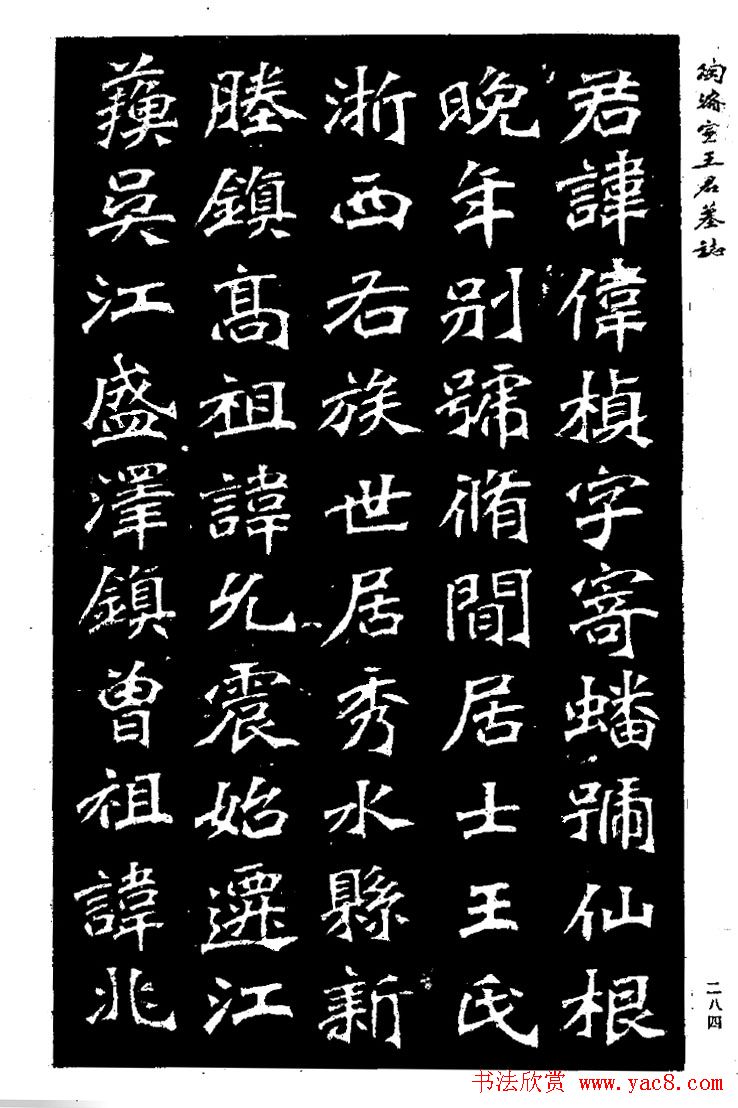 陶濬宣王君墓誌
君諱偉楨字寄蟠號仙根
晚年别號脩閒居士王氏
浙西右族世居秀水縣新
塍鎮高祖諱允震始遷江
蘇吳江盛澤鎮曾祖諱兆
二八四
书法欣赏 www.yac8.com